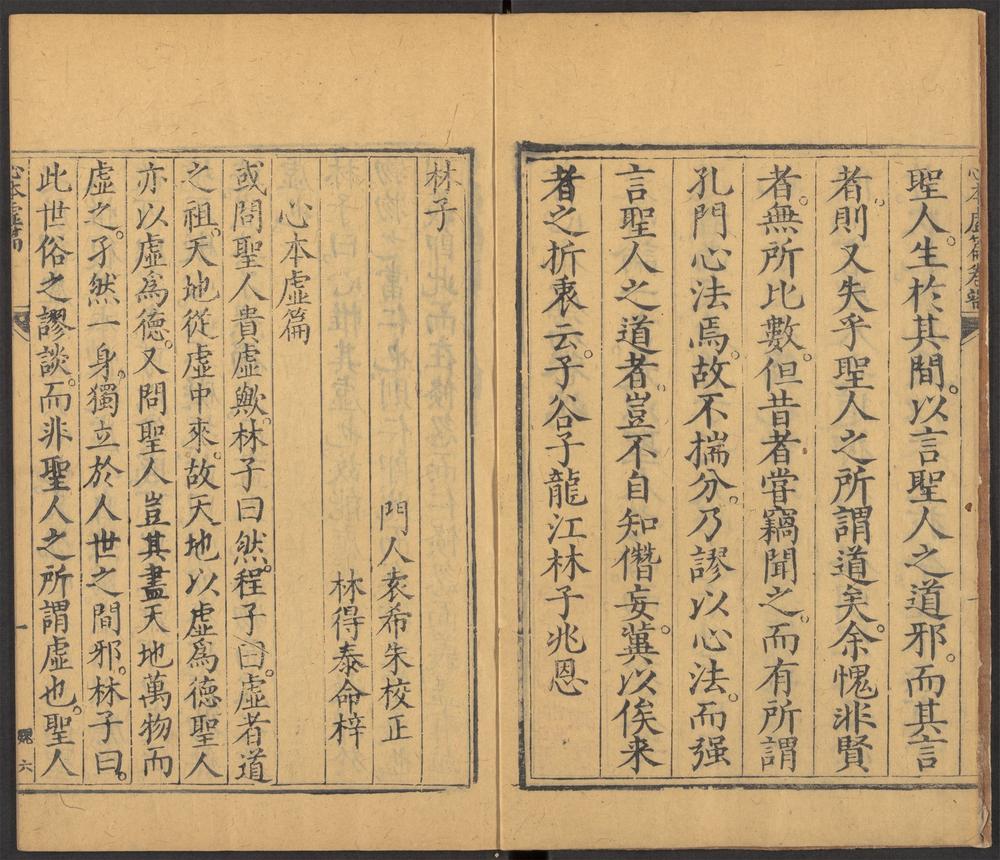 聖人生於其間。以言聖人之道邪。而其言
者。則又失乎聖人之所謂道矣。余愧非賢
者。無所比數。但昔者嘗竊聞之。而有所謂
孔門心法焉。故不揣分。乃謬以心法。而强
言聖人之道者。豈不自知僭妄。冀以俟来
者之折衷云。子谷子龍江林子兆恩
林子
門人袁希朱校正
林得泰命梓
心本虛篇
或問聖人貴虛歟。林子曰然。程子曰。虛者道
之祖。天地從虛中來。故天地以虛爲德。聖人
亦以虛爲德。又問聖人豈其盡天地萬物而
虛之。孑然一身。獨立於人世之間邪。林子曰。
此世俗之謬談。而非聖人之所謂虛也。聖人
心本虛篇
一
六